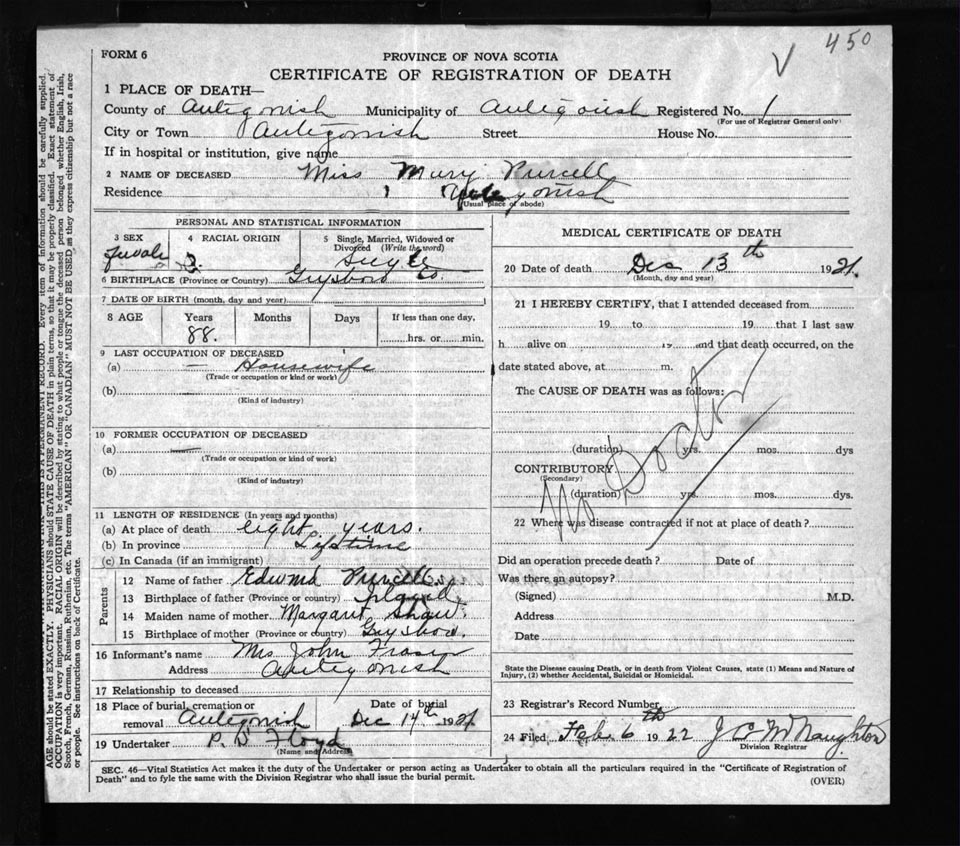 450
V
FORM 6
PROVINCE OF NOVA SCOTIA
CERTIFICATE OF REGISTRATION OF DEATH
1 PLACE OF DEATH—
County of Antigonish Municipality of Antigonish Registered No. 1
(For use of Registrar General only)
City or Town Antigonish Street House No.
If in hospital or institution, give name
2 NAME OF DECEASED Miss Mary Purcell
Residence Antigonish
(Usual place of abode)
PERSONAL AND STATISTICAL INFORMATION
3 SEX 4 RACIAL ORIGIN 5 Single, Married, Widowed or
Divorced (Write the word)
Female Single
6 BIRTHPLACE (Province or Country) Guysboro Co.
7 DATE OF BIRTH (month, day and year)
8 AGE Years Months Days If less than one day,
88. hrs. or min.
9 LAST OCCUPATION OF DECEASED
(a) — Housewife
(Trade or occupation or kind or work)
(b)
(Kind of industry)
10 FORMER OCCUPATION OF DECEASED
(a) —
(Trade or occupation or kind of work)
(b)
(Kind of industry)
11 LENGTH OF RESIDENCE (In years and months)
(a) At place of death eight years.
(b) In province Lifetime
(c) In Canada (if an immigrant)
Parents
12 Name of father Edward Purcell
13 Birthplace of father (Province or country)
14 Maiden name of mother Margaret Shaw.
15 Birthplace of mother (Province or country) Guysboro.
16 Informant's name Mrs John Fraser
Address Antigonish
17 Relationship to deceased
18 Place of burial, cremation or Date of burial
removal Antigonish Dec 14th 1921
19 Undertaker P. D Floyd
(Name and Address)
MEDICAL CERTIFICATE OF DEATH
20 Date of death Dec 13th 1921.
(Month, day and year)
21 I HEREBY CERTIFY, that I attended deceased from
19 to 19 that I last saw
h alive on 19 and that death occurred, on the
date stated above, at m.
The CAUSE OF DEATH was as follows:
No Doctor
(duration) yrs. mos. dys
CONTRIBUTORY
(Secondary)
(duration) yrs. mos. dys.
22 Where was disease contracted if not at place of death?
Did an operation precede death? Date of
Was there an autopsy?
(Signed) M.D.
Address
Date
State the Disease causing Death, or in death from Violent Causes, state (1) Means and Nature of
Injury, (2) whether Accidental, Suicidal or Homicidal.
23 Registrar's Record Number
24 Filed Feb. 6th 1922 J C McNaughton
Division Registrar
SEC. 46—Vital Statistics Act makes it the duty of the Undertaker or person acting as Undertaker to obtain all the particulars required in the "Certificate of Registration of
Death" and to fyle the same with the Division Registrar who shall issue the burial permit.
(OVER)
THIS IS A PERMANENT RECORD. Every item of information should be carefully supplied.
AGE should be stated EXACTLY. PHYSICIANS should STATE CAUSE OF DEATH in plain terms, so that it may be properly classified. Exact statement of
OCCUPATION is very important. RACIAL ORIGIN will be described by stating to what people or tongue the deceased person belonged whether English, Irish,
Scotch, French, German, Russian, Ruthenian, etc. The terms "AMERICAN" OR "CANADIAN" MUST NOT BE USED, as they express citizenship but not a race
or people. See instructions on back of Certificate.